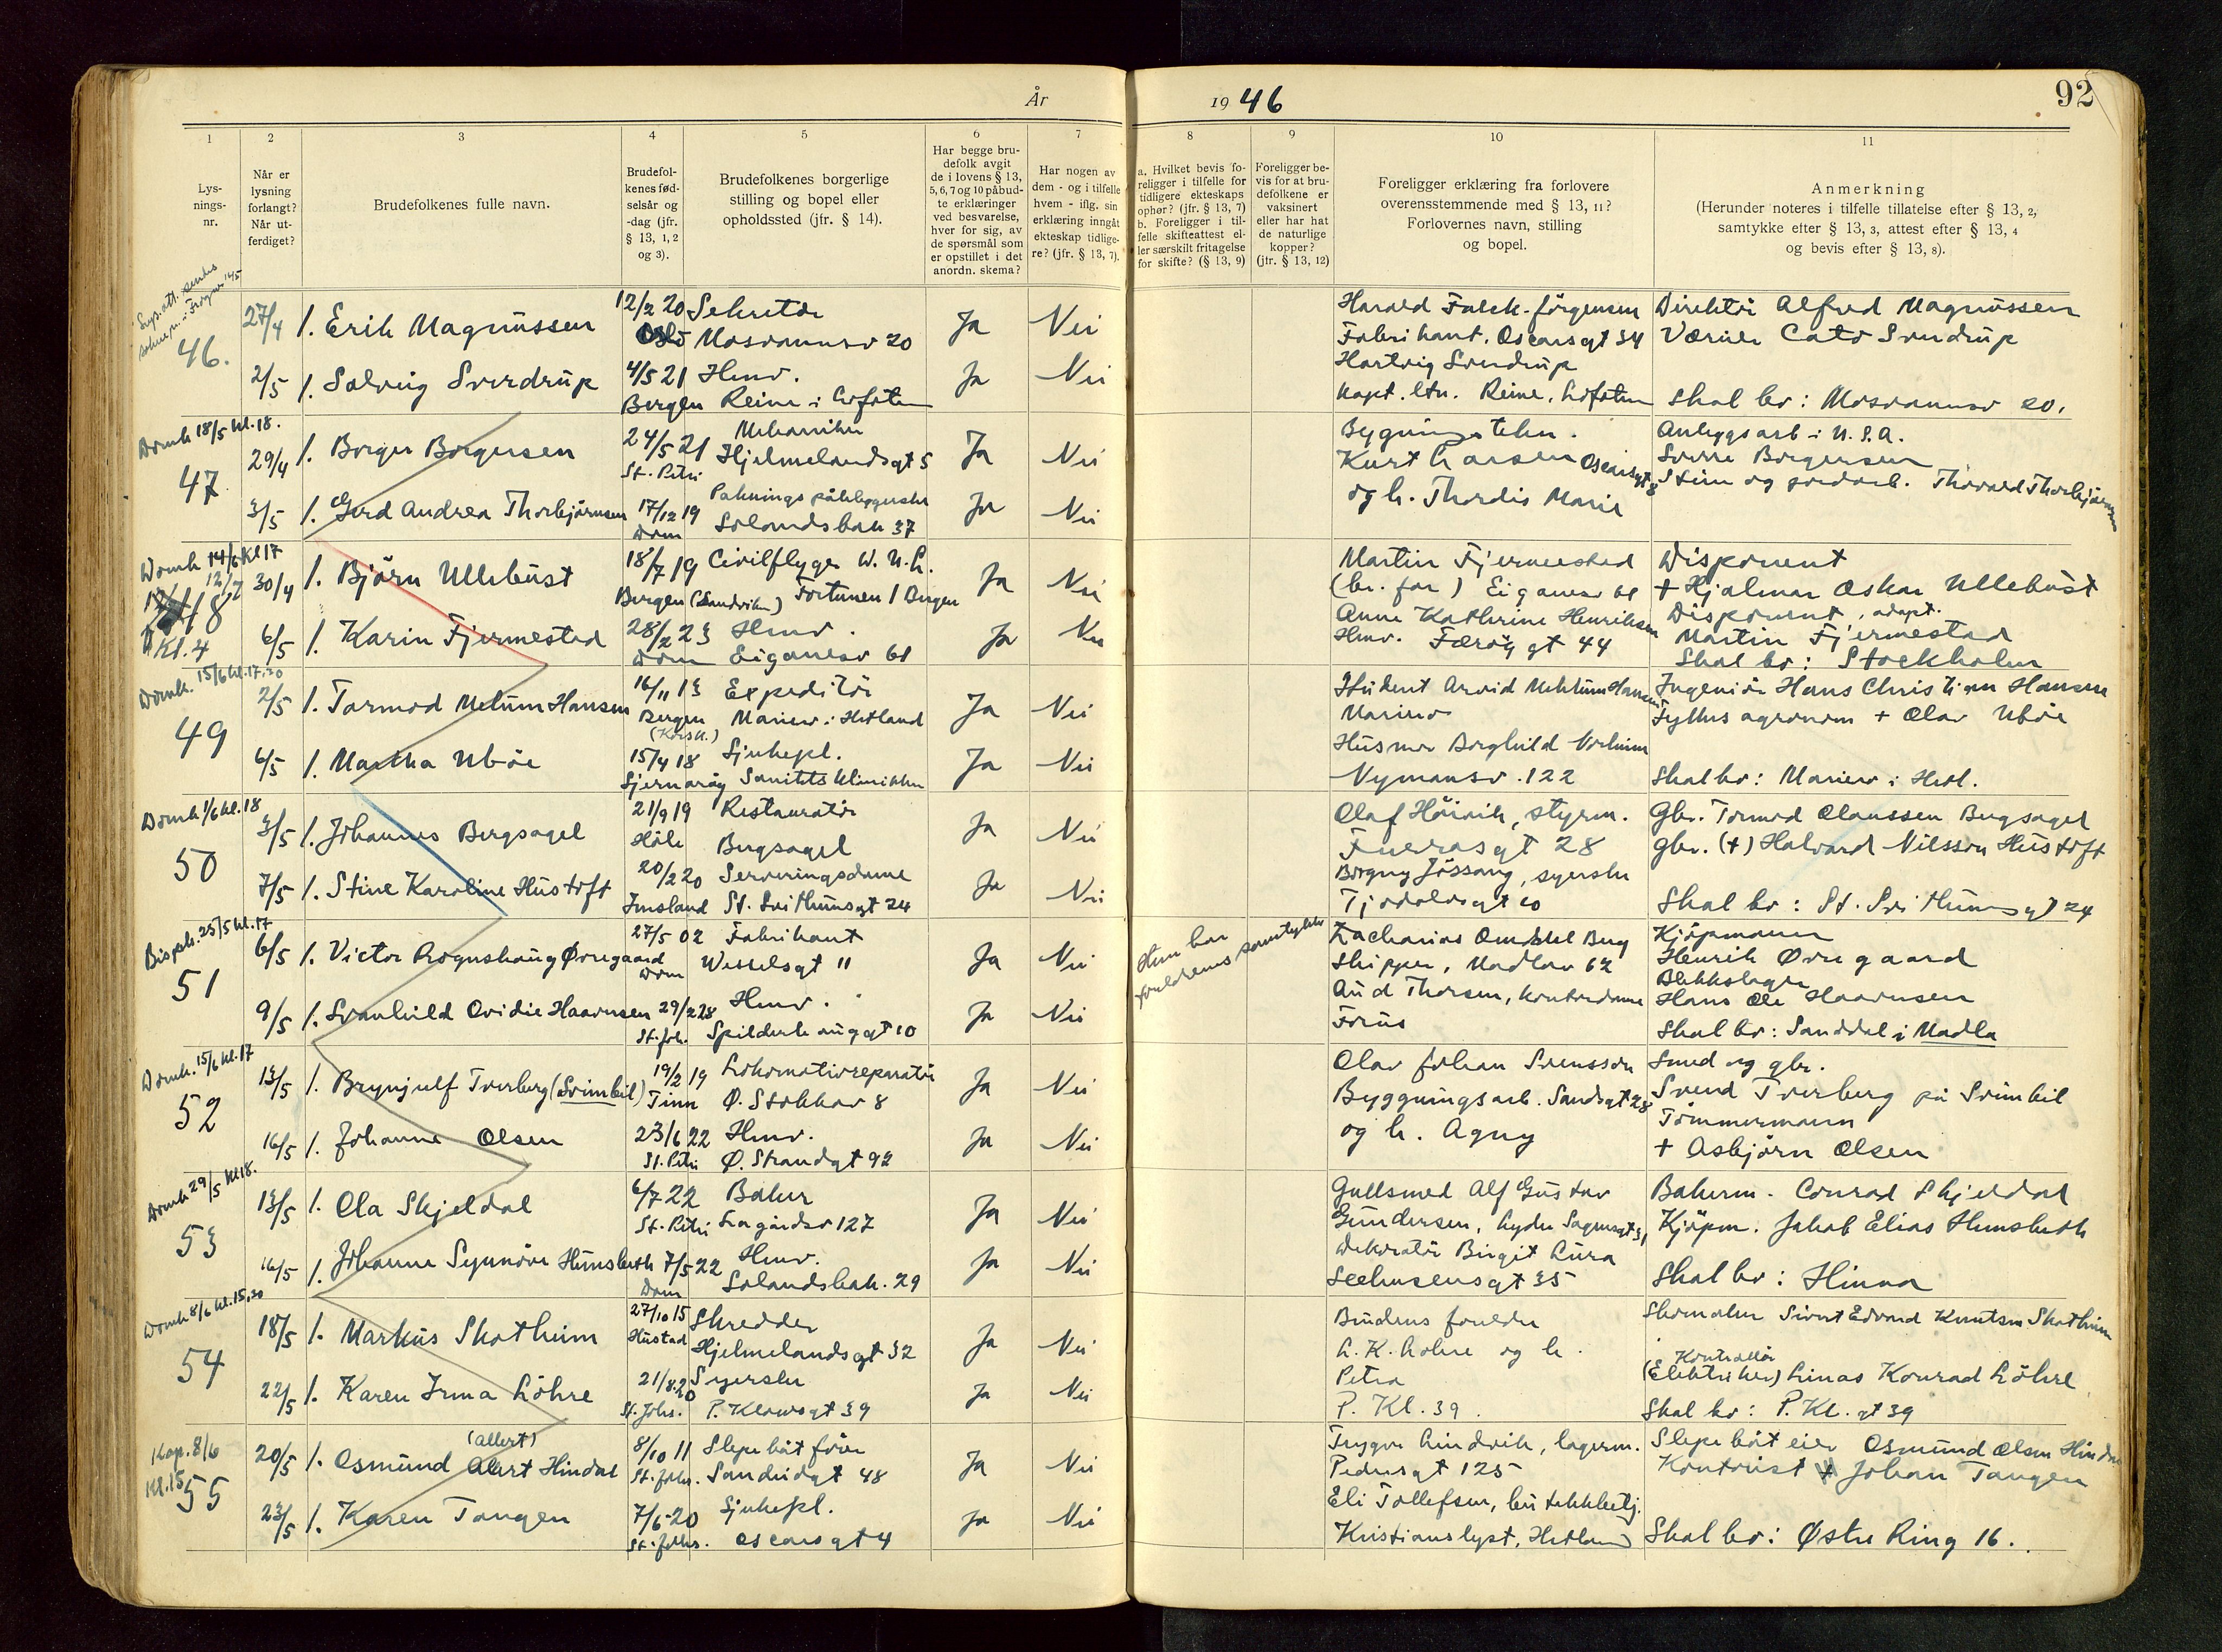 År
1946
92
1
2
3
4
5
6
7
8
9
10
11
Lys-
nings-
nr.
Når er
lysning
forlangt?
Når ut-
ferdiget?
Brudefolkenes fulle navn.
Brudefol-
kenes fød-
selsår og
-dag (jfr.
§ 13, 1, 2
og 3).
Brudefolkenes borgerlige
stilling og bopel eller
opholdssted (jfr. § 14).
Har begge bru-
defolk avgit
de i lovens § 13,
5, 6, 7 og 10 påbud-
te erklæringer
ved besvarelse,
hver for sig, av
de spørsmål som
er opstillet i det
anordn. skema?
Har nogen av
dem - og i tilfelle
hvem - iflg. sin
erklæring inngåt
ekteskap tidlige-
re? (jfr. § 13, 7).
a. Hvilket bevis fo-
religger i tilfelle for
tidligere ekteskaps
ophør? (jfr. § 13, 7)
b. Foreligger i til-
felle skifteattest el-
ler særskilt fritagelse
for skifte? (§ 13, 9)
Foreligger be-
vis for at bru-
defolkene er
vaksinert
eller har hat
de naturlige
kopper?
(jfr. § 13, 12)
Foreligger erklæring fra forlovere
overensstemmende med § 13, 11?
Forlovernes navn, stilling
og bopel.
Anmerkning
(Herunder noteres i tilfelle tillatelse efter § 13, 2,
samtykke efter § 13, 3, attest efter § 13, 4
og bevis efter § 13, 8).
46.
27/4 1. Erik Magnussen 12/2 20 Sekretær Ja Nei
Oslo Mosvannsv 20
2/5 1. Solveig Sverdrup 4/5 21 Hmv. Ja Nei
Bergen Reine i Lofoten
Harald Falck-Jørgensen
Fabrikant. Oscarsgt 34
Hartvig Sverdrup
kapt. ltn. Reine, Lofoten
Direktör Alfred Magnussen
Væreier Cato Sverdrup
Skal bo: Mosvannsv 20.
Domk 18/5 kl. 18.
47
29/4 1. Borger Borgersen 24/5 21 Mekaniker Ja Nei
St. Petri Hjelmelandsgt 5
3/5 1. Gerd Andrea Thorbjørnsen 17/12 19 Ja Nei
Dom Solandsbak 37
Bygningstekn.
Kurt Larsen Oscarsgt 8
og h. Thordis Marie
Anleggsarb i U.S.A.
Sverre Borgersen
Stein og jordarb. Thorvald Thorbjørnsen
Domk 14/6 Kl 17
12/7
Kl. 4
30/4 1. Bjørn Ullebust 18/7 19 Civilflyger W. N. L. Ja Nei
Bergen (Sandviken) Fortunen 1 Bergen
6/5 1. Karin Fjermestad 28/2 23 Hmv. Ja Nei
Dom Eiganesv 61
Martin Fjermestad
(br. far) Eiganesv 61
Anne Kathrine Henriksen
Hmv. Færöygt 44
Disponent
+ Hjalmar Oskar Ullebust
Disponent, adopt.
Martin Fjermestad
Skal bo: Stockholm
Domk. 15/6 kl. 17.30
49
2/5 1. Tormod Mehum Hansen 16/11 13 Expeditör Ja Nei
Bergen Mariero i Hetland
(Korsk.)
6/5 1. Martha Uböe 15/4 18 Sjukepl. Ja Nei
Sjernaröy Sanitetsklinikken
Student Arvid Mehum Hansen
Mariero
Husmor Borghild
Nymansv. 122
Ingeniör Hans Christian Hansen
Fylkesagronom + Olav Uböe
Skal bo: Mariero i Hetl.
Domk 1/6 kl. 18
50
3/5 1. Johannes Bergsagel 21/9 19 Restauratör Ja Nei
Höle Bergsagel
7/5 1. Stine Karoline Hustoft 20/2 20 Serveringsdame Ja Nei
Imsland St. Svithunsgt 24
Olaf Höivik, styrm.
Fuerasgt 28
Borgny Jössang, syerske
Tjodolvsgt 10
Gbr. Tormod Olaussen Bergsagel
gbr. (+) Halvard Nilsson Hustoft
Skal bo: St. Svithunsgt 24
Bispek. 25/5 kl. 17
51
6/5 1. Victor Rognshaug Øvregaard 27/5 02 Fabrikant Ja Nei
Dom Wesselsgt 11
9/5 1. Svanhild Ovidie Haaversen 29/2 28 Hmv. Ja Nei
St. Joh. Spilderhauggt 10
Hun har
foreldrenes samtykke
Zacharias Berg
Skipper, Madlav 62
Aud Thorsen, kontordame
Forus
Kjöpmann
Henrik Øvregaard
Blikkslager
Hans Ole Haaversen
Skal bo: Sanddal i Madla
Domk. 15/6 kl. 17
52
13/5 1. Brynjulf Tverberg (Svimbil) 19/2 19 Lokomotivreparatör Ja Nei
Tinn Ø. Stokkav 8
16/5 1. Johanne Olsen 23/6 22 Hmv. Ja Nei
St. Petri Ø. Strandgt 92
Olav Johan Svensson
Byggningsarb. Sandsgt 28
og h. Agny
Smed og gbr.
Svend Tverberg på Svimbil
Tömmermann
+ Asbjörn Olsen
Domk 29/5 Kl 18.
53
13/5 1. Ola Skjeldal 6/7 22 Baker Ja Nei
St. Petri Lagårdsv 127
16/5 1. Johanne Synnöve Humsleth 7/5 22 Hmv. Ja Nei
Dom Solandsbak. 29
Gullsmed Alf Gustav
Gundersen, Lyder Sagensgt 31
Dekoratör Birgit Lura
Seehusensgt 35
Bakerm. Conrad Skjeldal
Kjöpm. Jakob Elias Humsleth
Skal bo: Hinna
Domk 8/6 kl. 15.30
54
18/5 1. Markus Skotheim 27/10 15 Skredder Ja Nei
Hustad Hjelmelandsgt 32
22/5 1. Karen Irma Löhre 21/8.20 Syerske Ja Nei
St. Johs. P. Klowsgt 39
Brudens foreldre
L. K. Lohre og h.
Petra
P. Kl. 39.
Skomaker Sivert Edvard Knutsen Skotheim
Kontrollör
(Elektriker) Linas Konrad Löhre
Skal bo: P. Kl. gt 39
Kap. 8/6
Kl. 15
55
(Allert)
20/5 1. Osmund Alert Hindal 8/10 11 Slepebåtförer Ja Nei
St. Johs. Sandeidgt 48
23/5 1. Karen Tangen 7/6-20 Sjukepl. Ja Nei
St. Johs. Oscarsgt 4
Trygve Lindvik, lagerm.
Pedersgt 125
Eli Tollefsen, butekkbetj.
Kristianslyst, Hetland
Slepebåteier Osmund Olsen Hindal
Kontorist + Johan Tangen
Skal bo: Østre Ring 16.